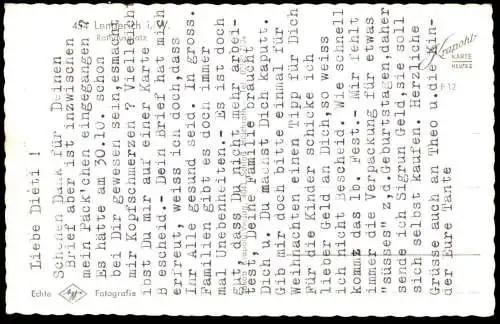 Liebe Dieti !
Schönen Dank für Deinen
Brief aber ist inzwischen
mein Päck'chen eingegangen?
Es hätte am 30.10. schon
bei Dir gewesen sein, es macht
mir Kopfschmerzen ? Vielleicht
ibst Du mir auf einer Karte
B escheid.- Dein Brief hat mich
erfreut, weiss ich doch,dass
Ihr Alle gesund seid. In gross.
Familien gibt es doch immer
mal Unebenheiten.- Es ist doch
gut, dass Du nicht mehr arbei-
test, Deine Familie braucht
Dich u. Du machst Dich kaputt.
Gib mir doch bitte einmal für
Weihnachten einen Tipp für Dich
Für die Kinder schicke ich
lieber Geld an Dich,so weiss
ich nicht Bescheid. Wie schnell
kommt das lb. Fest.- Mir fehlt
immer die Verpackung für etwas
"süsses" z,d.Geburtstagen,daher
sende ich Sigrun Geld,sie soll
sich selbst kaufen. Herzliche
Grüsse auch an Theo u.die Kin-
der Eure Tante
Lengerich i. W.
Rathausplatz
Echte Fotografie
KARTE